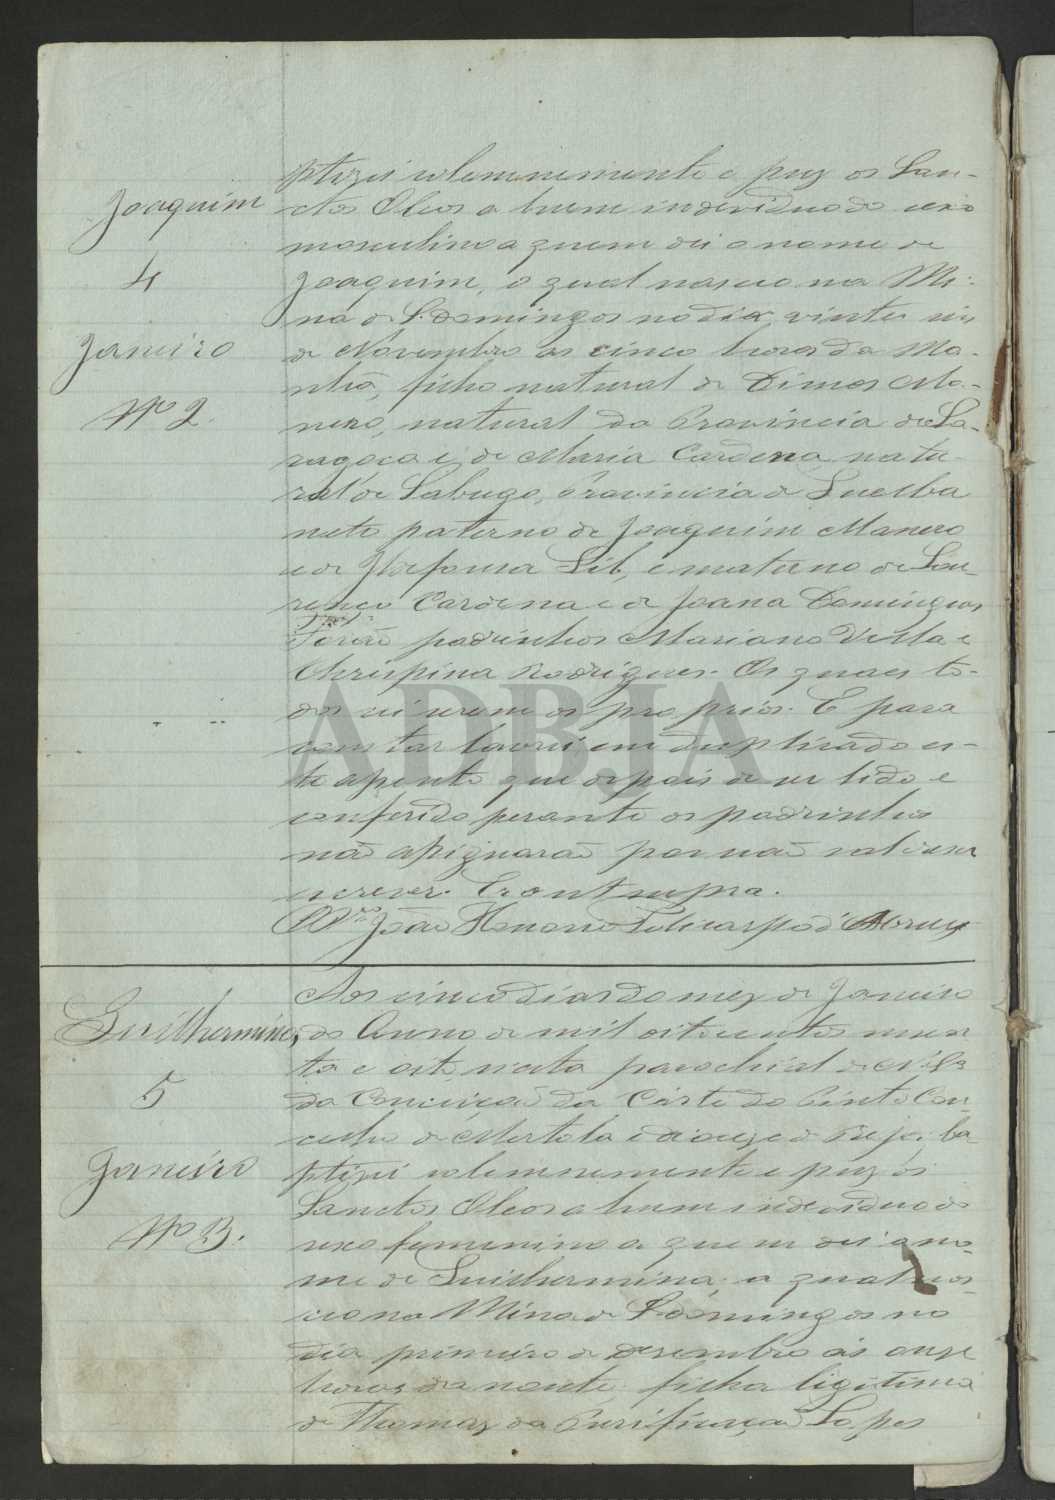 Joaquim
4
Janeiro
Nº 2.
ptizei solemnemente e puz os San-
ctos Oleos a hum individuo do sexo
masculino a quem dei o nome de
Joaquim, o qual nasceo na Mi-
na de S. Domingos no dia vinte seis
de Novembro as cinco horas da Ma-
nhã, filho natural de Dimas Ma-
nero, natural da Provincia de Sa-
ragoça e de Maria Cardena, natu-
ral de Labugo, Provincia de
neto paterno de Joaquim Manero
e de Ildefonsa Lib, e materno de Lou-
renço Cardena e de Joana Domingues
Forão padrinhos Mariano Villa e
Chrispina Rodrigues. Os quaes to-
dos sei serem os proprios. E para
constar lavrei em duplicado es-
te aþento que depois de ser lido e
conferido perante os padrinhos
não aþignarão por não saberem
escrever. Era ut supra.
O João Honorio Policarpo d'Abreu
Guilhermina,
5
Janeiro
Nº 3.
Aos cinco dias do mez de Janeiro
do Anno de mil oitocentos noven-
ta e oito nesta parochial de N. Sra
da Conceição da Corte do Pinto Con-
celho de Mertola e diocese de Beja, ba-
ptizei solemnemente e puz os
Sanctos Oleos a hum individuo do
sexo femenino a quem dei o no-
me de Guilhermina, a qual nas-
ceo na Mina de S. Domingos no
dia primeiro de desembro ás onze
horas da noute filha ligitima
de Thomaz da Purificação Lopes
ADBJA